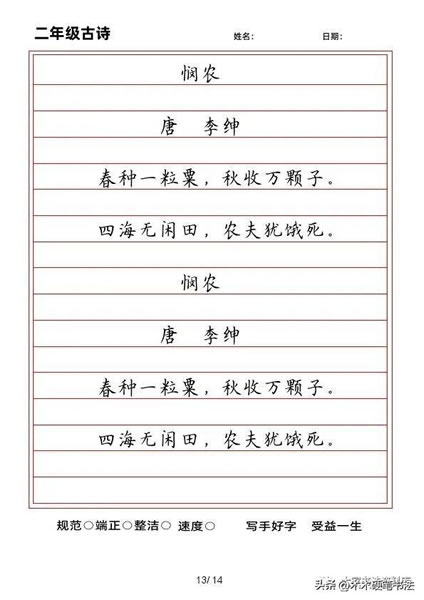 二年级古诗 姓名： 日期：
悯农
唐 李绅
春种一粒粟，秋收万颗子。
四海无闲田，农夫犹饿死。
悯农
唐 李绅
春种一粒粟，秋收万颗子。
四海无闲田，农夫犹饿死。
规范○端正○整洁○ 速度○ 写手好字 受益一生
13/14
头条 @木木硬笔书法